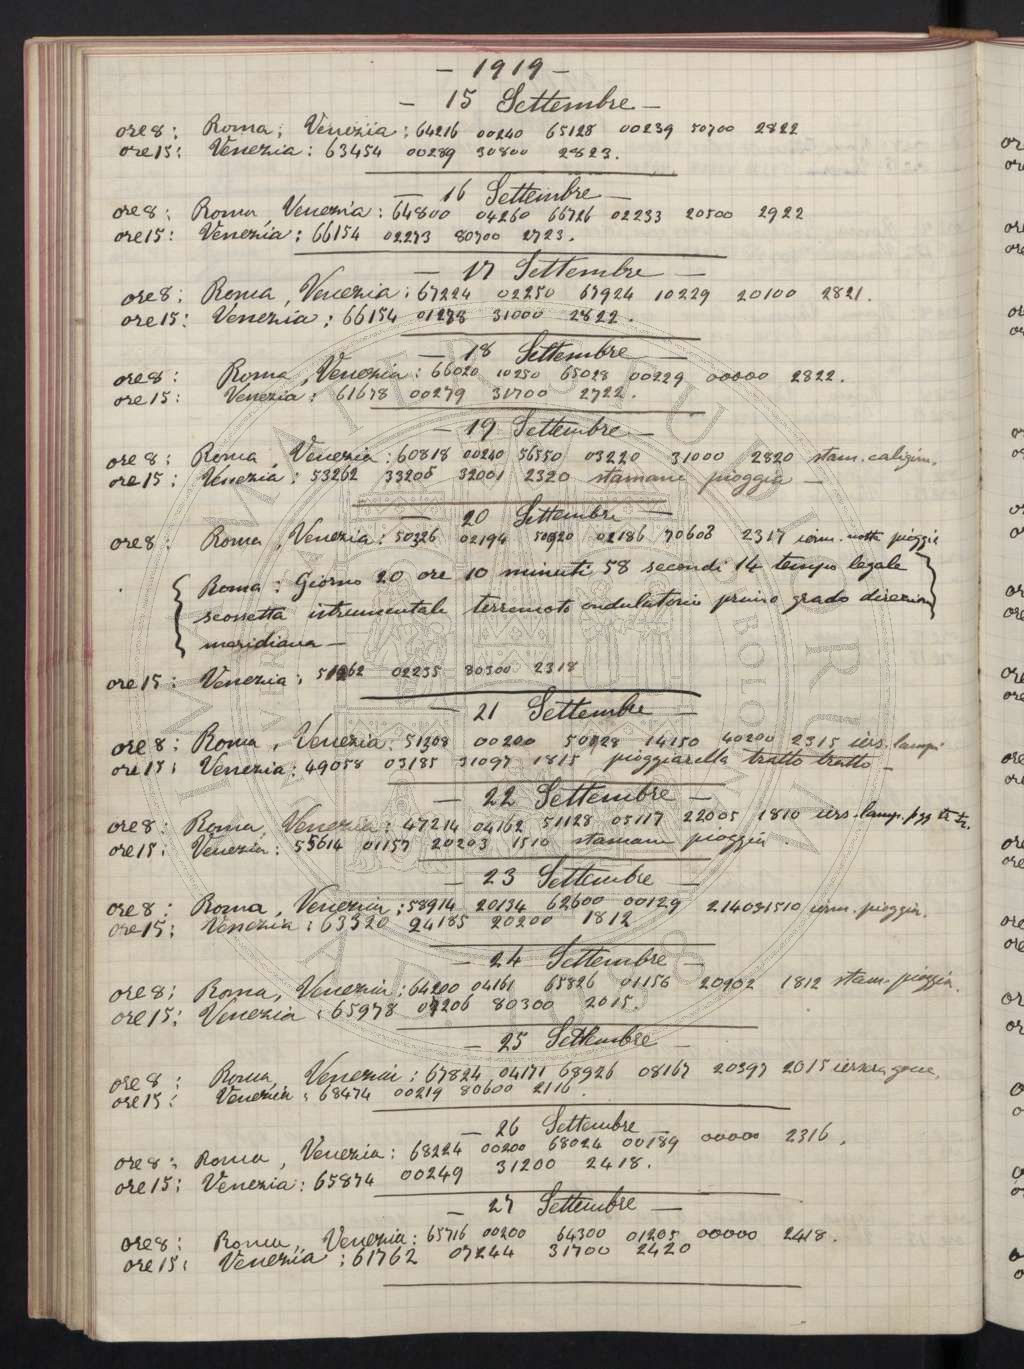 - 1919 -
- 15 Settembre -
ore 8: Roma, Venezia: 64216 00240 65128 00239 50700 2822
ore 15: Venezia: 63454 00289 30800 2823.
- 16 Settembre -
ore 8: Roma, Venezia: 64800 04260 66726 02233 20500 2922
ore 15: Venezia: 66154 02273 80700 2723.
- 17 Settembre -
ore 8: Roma, Venezia: 67224 02250 67924 10229 20100 2821.
ore 15: Venezia: 66154 01278 31000 2822.
- 18 Settembre -
ore 8: Roma, Venezia: 66020 10250 65028 00229 00000 2822.
ore 15: Venezia: 61678 00279 31700 2722.
- 19 Settembre -
ore 8: Roma, Venezia: 60818 00240 56550 03220 31000 2820 stam. caligin.
ore 15: Venezia: 53262 33206 32001 2320 stamani pioggia -
- 20 Settembre -
ore 8: Roma, Venezia: 50326 02194 50920 02186 70608 2317 notte pioggia
Roma: Giorno 20 ore 10 minuti 58 secondi 14 tempo legale
scossetta istrumentale terremoto ondulatorio primo grado direzion
meridiana -
ore 15: Venezia: 02235 80300 2318
- 21 Settembre -
ore 8: Roma, Venezia: 51308 00200 50928 14150 40200 2315 iers. lampi
ore 15: Venezia: 49058 03185 31097 1815 pioggiarella tratto tratto -
- 22 Settembre -
ore 8: Roma, Venezia: 47214 04162 51128 05117 22005 1810 iers. lamp. pgg tt. tt.
ore 15: Venezia: 55614 01157 20203 1510 stamani pioggia.
- 23 Settembre -
ore 8: Roma, Venezia: 58914 20134 62600 00129 21403 1510 pioggia.
ore 15: Venezia: 63320 24185 20200 1812
- 24 Settembre -
ore 8: Roma, Venezia: 64200 04161 65826 01156 20902 1812 stam. pioggia.
ore 15: Venezia: 65978 80300 2015.
- 25 Settembre -
ore 8: Roma, Venezia: 67824 04171 68926 08167 20397 2015 iersera
ore 15: Venezia: 68474 00219 80600 2116.
- 26 Settembre -
ore 8: Roma, Venezia: 68224 00200 68024 00189 00000 2316.
ore 15: Venezia: 65874 00249 31200 2418.
- 27 Settembre -
ore 8: Roma, Venezia: 65716 00200 64300 01205 00000 2418.
ore 15: Venezia: 61762 07244 31700 2420